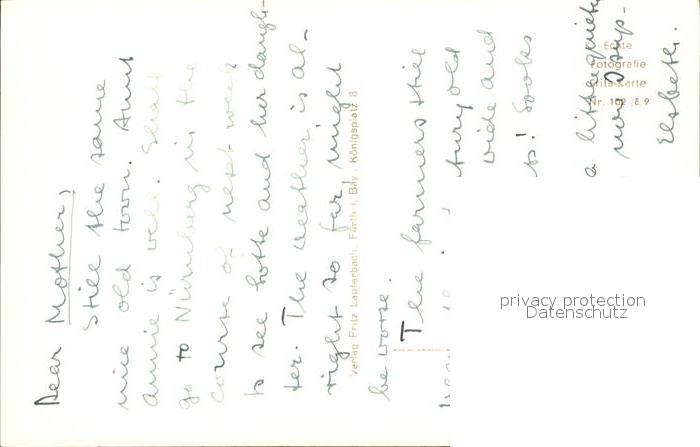 Dear Mother,
Still the same
nice old town. Aunt
Annie is well. Shall
go to Nürnberg in the
course of next week
to see Lotte and her daugh-
ter. The weather is al-
right so far, might
be worse.
The farmers still
tury old
wide and
to! Looks
a little quieter
now
Elsbeth.
Verlag Fritz Lauterbach, Fürth i. Bay., Königsplatz 8
Echte
Fotografie
Karte
Nr. 102/89
privacy protection
Datenschutz